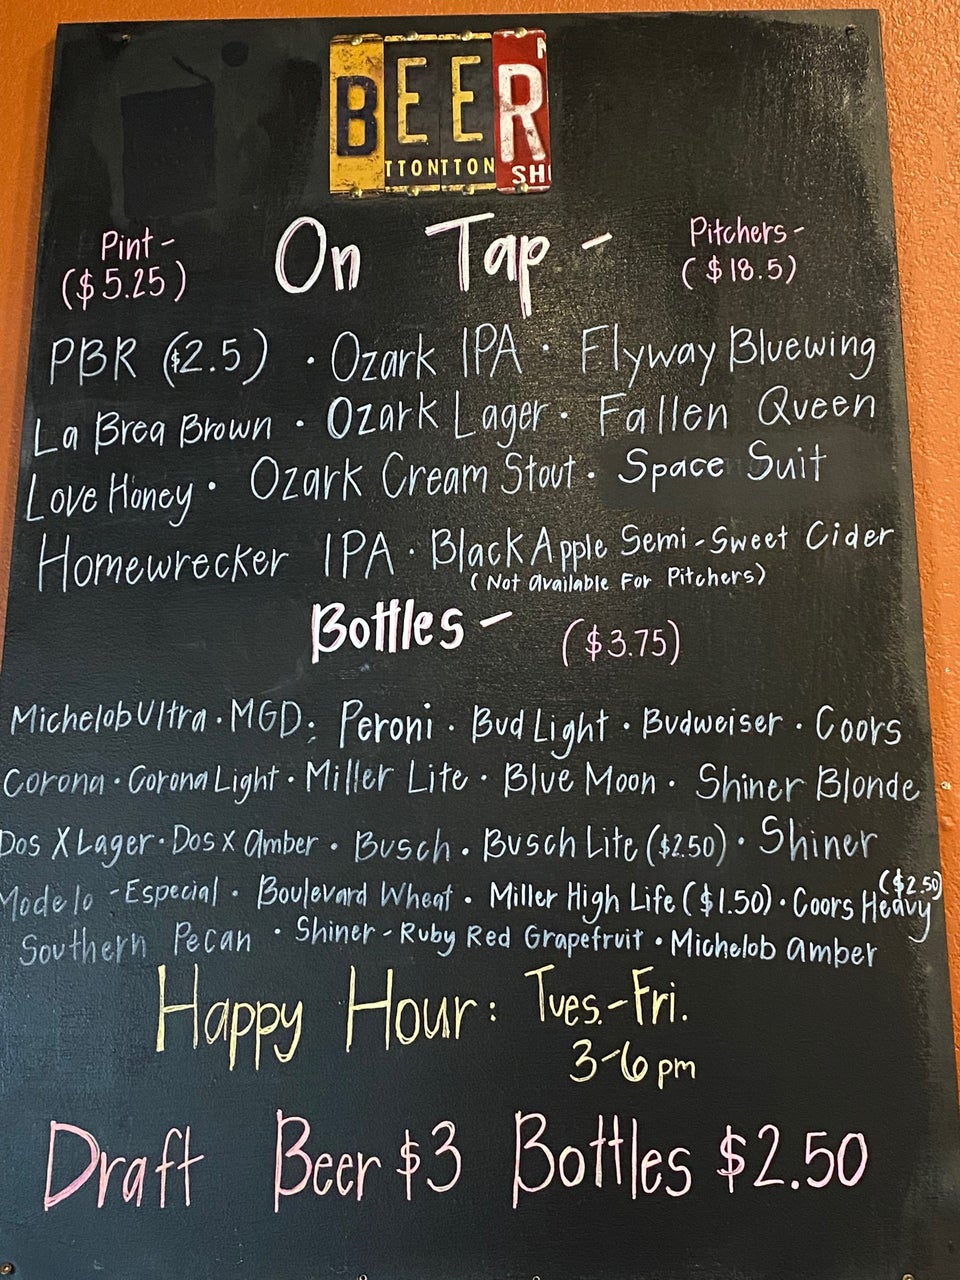 BEER
TTONTTON SH
On Tap -
Pint -
($5.25)
Pitchers -
($18.5)
PBR ($2.5) · Ozark IPA · Flyway Bluewing
La Brea Brown · Ozark Lager · Fallen Queen
Love Honey · Ozark Cream Stout · Space Suit
Homewrecker IPA · Black Apple Semi-Sweet Cider
(Not available For Pitchers)
Bottles - ($3.75)
Michelob Ultra · MGD · Peroni · Bud Light · Budweiser · Coors
Corona · Corona Light · Miller Lite · Blue Moon · Shiner Blonde
Dos X Lager · Dos X Amber · Busch · Busch Lite ($2.50) · Shiner
Modelo - Especial · Boulevard Wheat · Miller High Life ($1.50) · Coors Heavy ($2.50)
Southern Pecan · Shiner - Ruby Red Grapefruit · Michelob amber
Happy Hour: Tues.-Fri.
3-6 pm
Draft Beer $3 Bottles $2.50